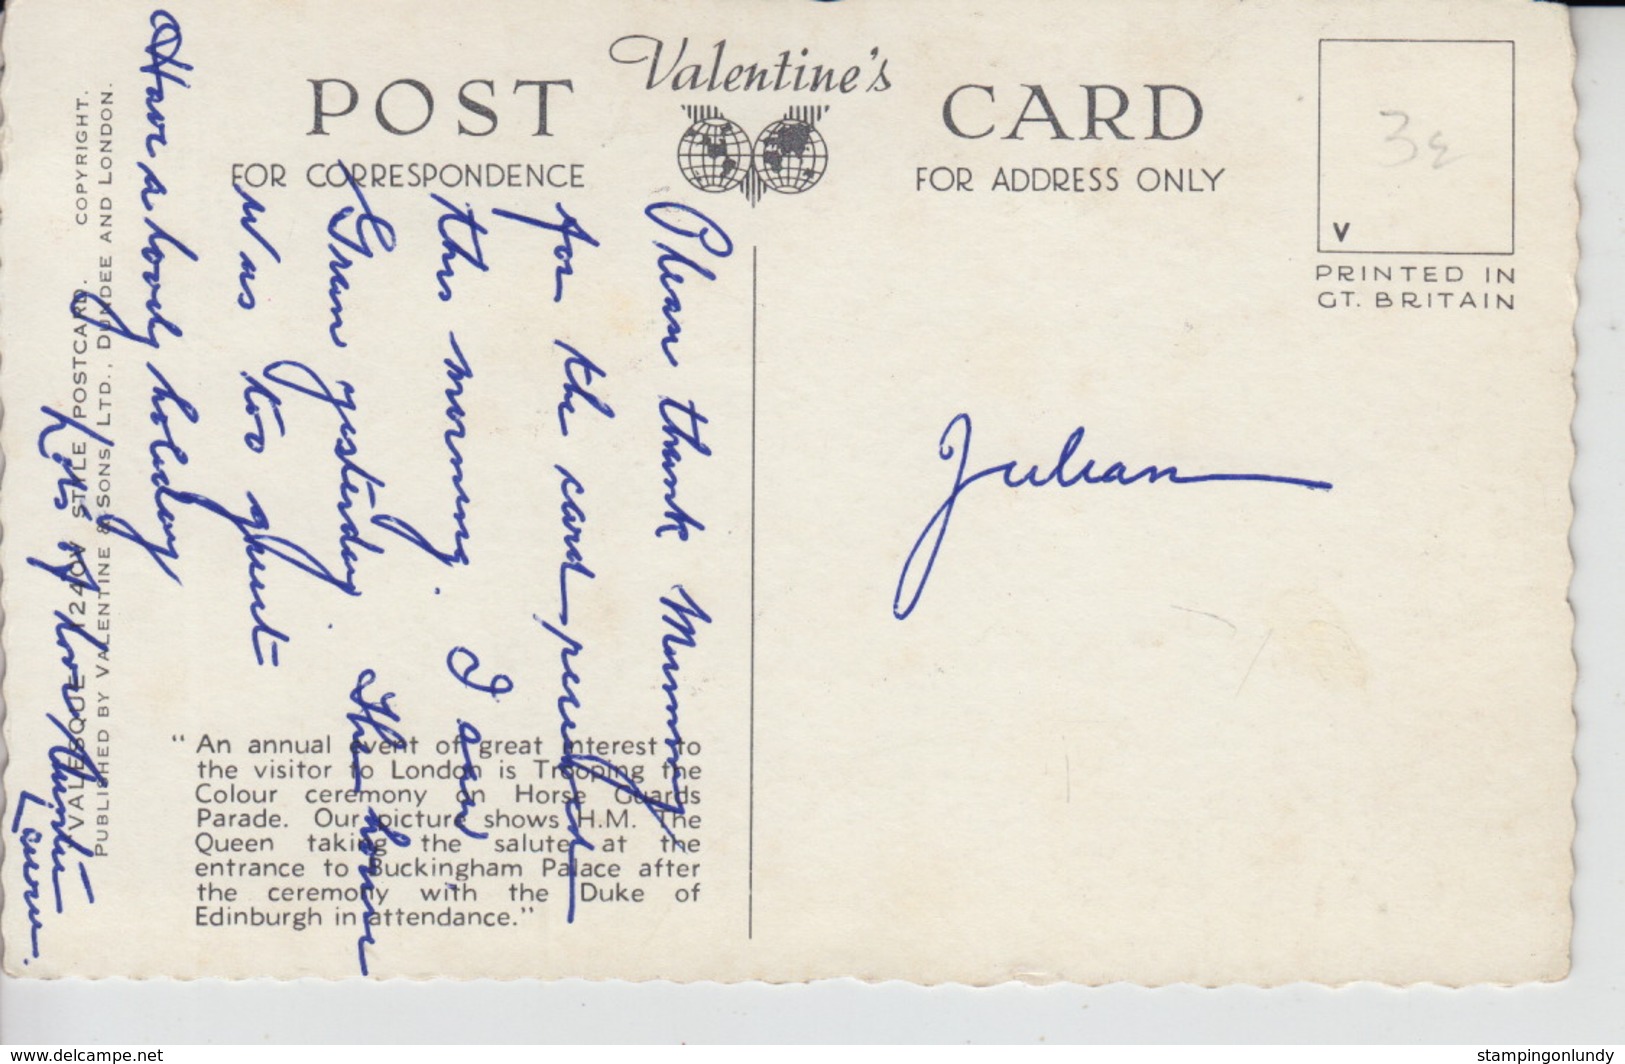 Valentine's
POST CARD
FOR CORRESPONDENCE
FOR ADDRESS ONLY
3ε
V
PRINTED IN
GT. BRITAIN
Please thank Mummy
for the card received
this morning. I saw
Gran yesterday. The home
was too quiet
Have a lovely holiday
Lots of love Auntie
Laura.
Julian
"An annual event of great interest to
the visitor to London is Trooping the
Colour ceremony on Horse Guards
Parade. Our picture shows H.M. The
Queen taking the salute at the
entrance to Buckingham Palace after
the ceremony with the Duke of
Edinburgh in attendance."
"VALESQUE" 1240V STYLE POSTCARD. COPYRIGHT.
PUBLISHED BY VALENTINE & SONS, LTD., DUNDEE AND LONDON.
https://www.delcampe.net
stampingonlundy